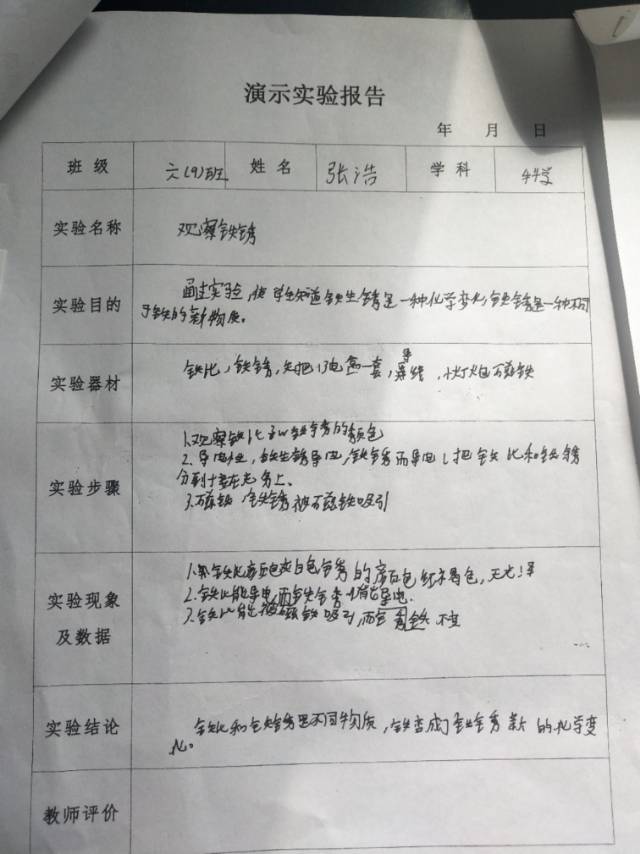 演示实验报告
年 月 日
班级 六(9)班 姓名 张浩 学科 科学
实验名称 观察铁锈
实验目的 通过实验,使学生知道铁生锈是一种化学变化,铁锈是一种不同
于铁的新物质。
实验器材 铁片,铁锈,电池盒一套,导线,小灯炮 磁铁
实验步骤
1.观察铁片和铁锈的颜色
2.导电性,铁生锈导电,铁锈导电,把铁片和铁锈
分别接在电路上。
3.磁铁,铁锈被磁铁吸引
实验现象
及数据
1.铁片 白色 锈的颜色红褐色,无光泽
2.铁片能导电,而铁锈不能导电.
3.铁片能被磁铁吸引,而 铁不
实验结论 铁片和铁锈是不同物质,铁变成了铁锈 新的化学变
化。
教师评价